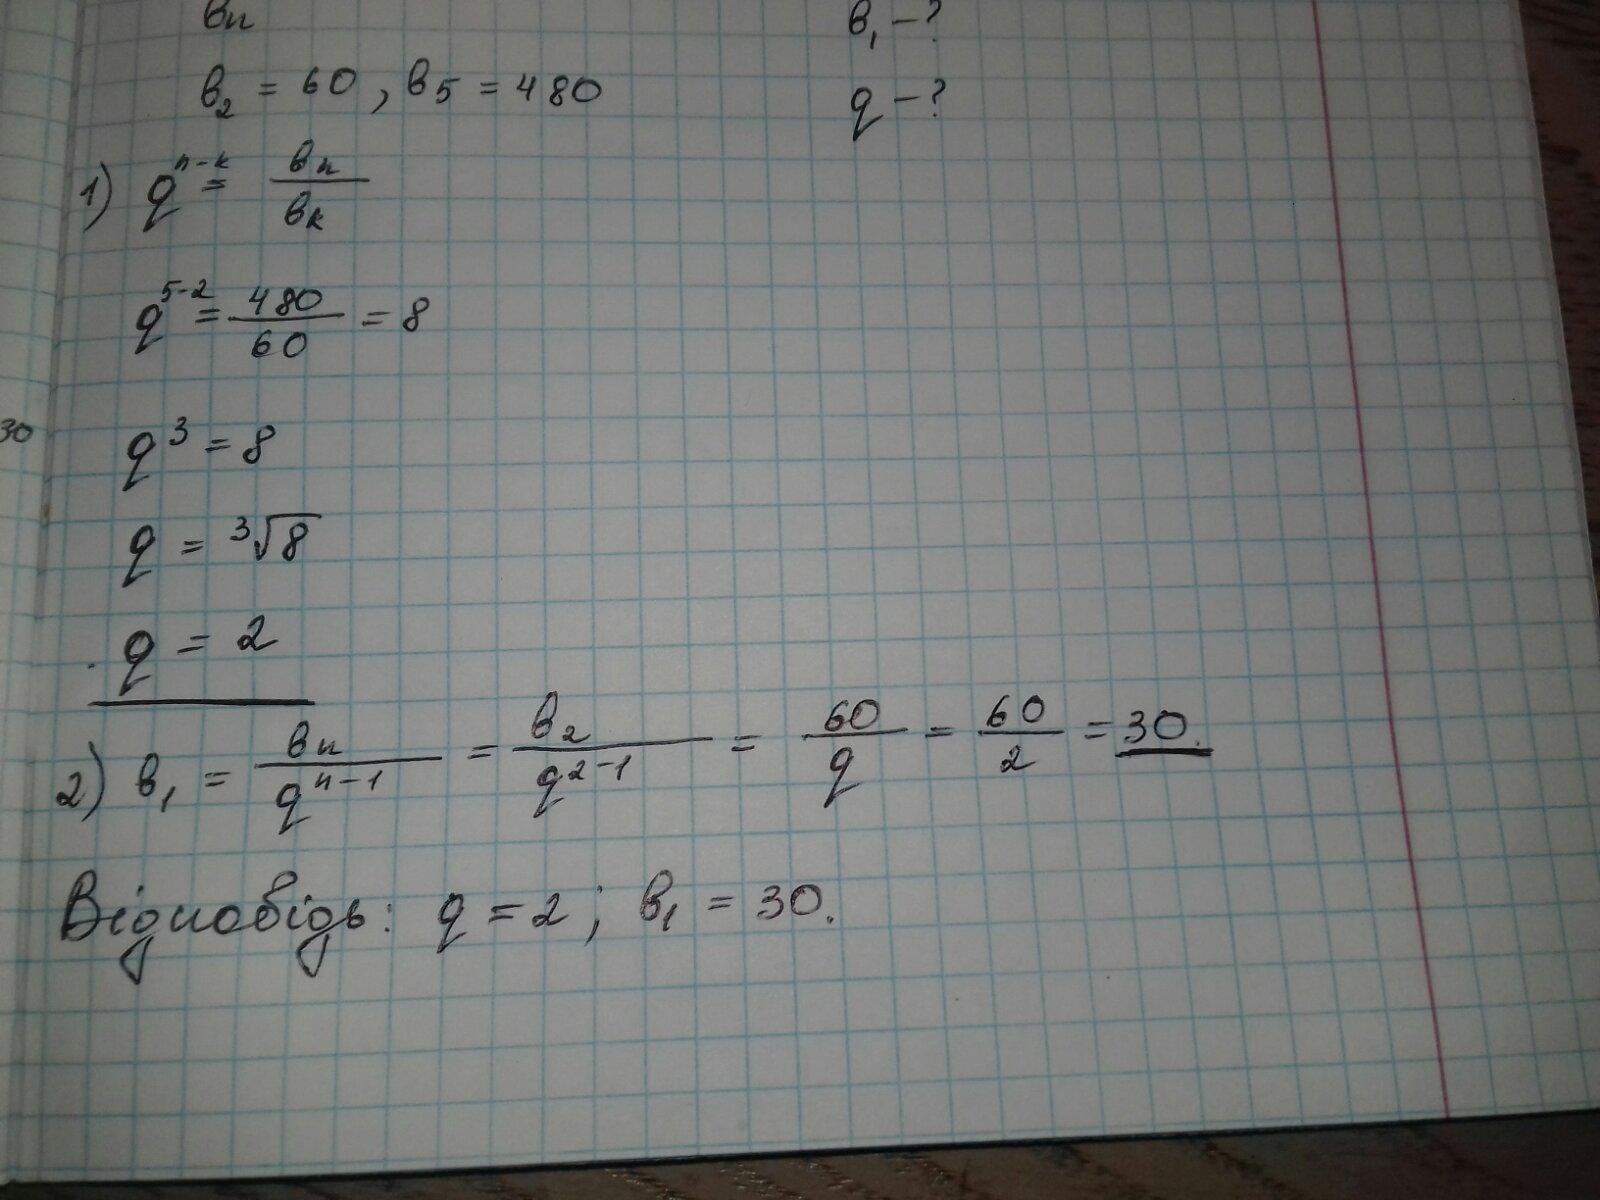 вn    в₁ – ?
в₂ = 60, в5 = 480    q – ?
1) q^(n-k) = вn/вk
q^(5-2) = 480/60 = 8
30
q³ = 8
q = ³√8
q = 2
2) в₁ = вn/q^(n-1) = в₂/q^(2-1) = 60/q = 60/2 = 30.
Відповідь: q = 2; в₁ = 30.